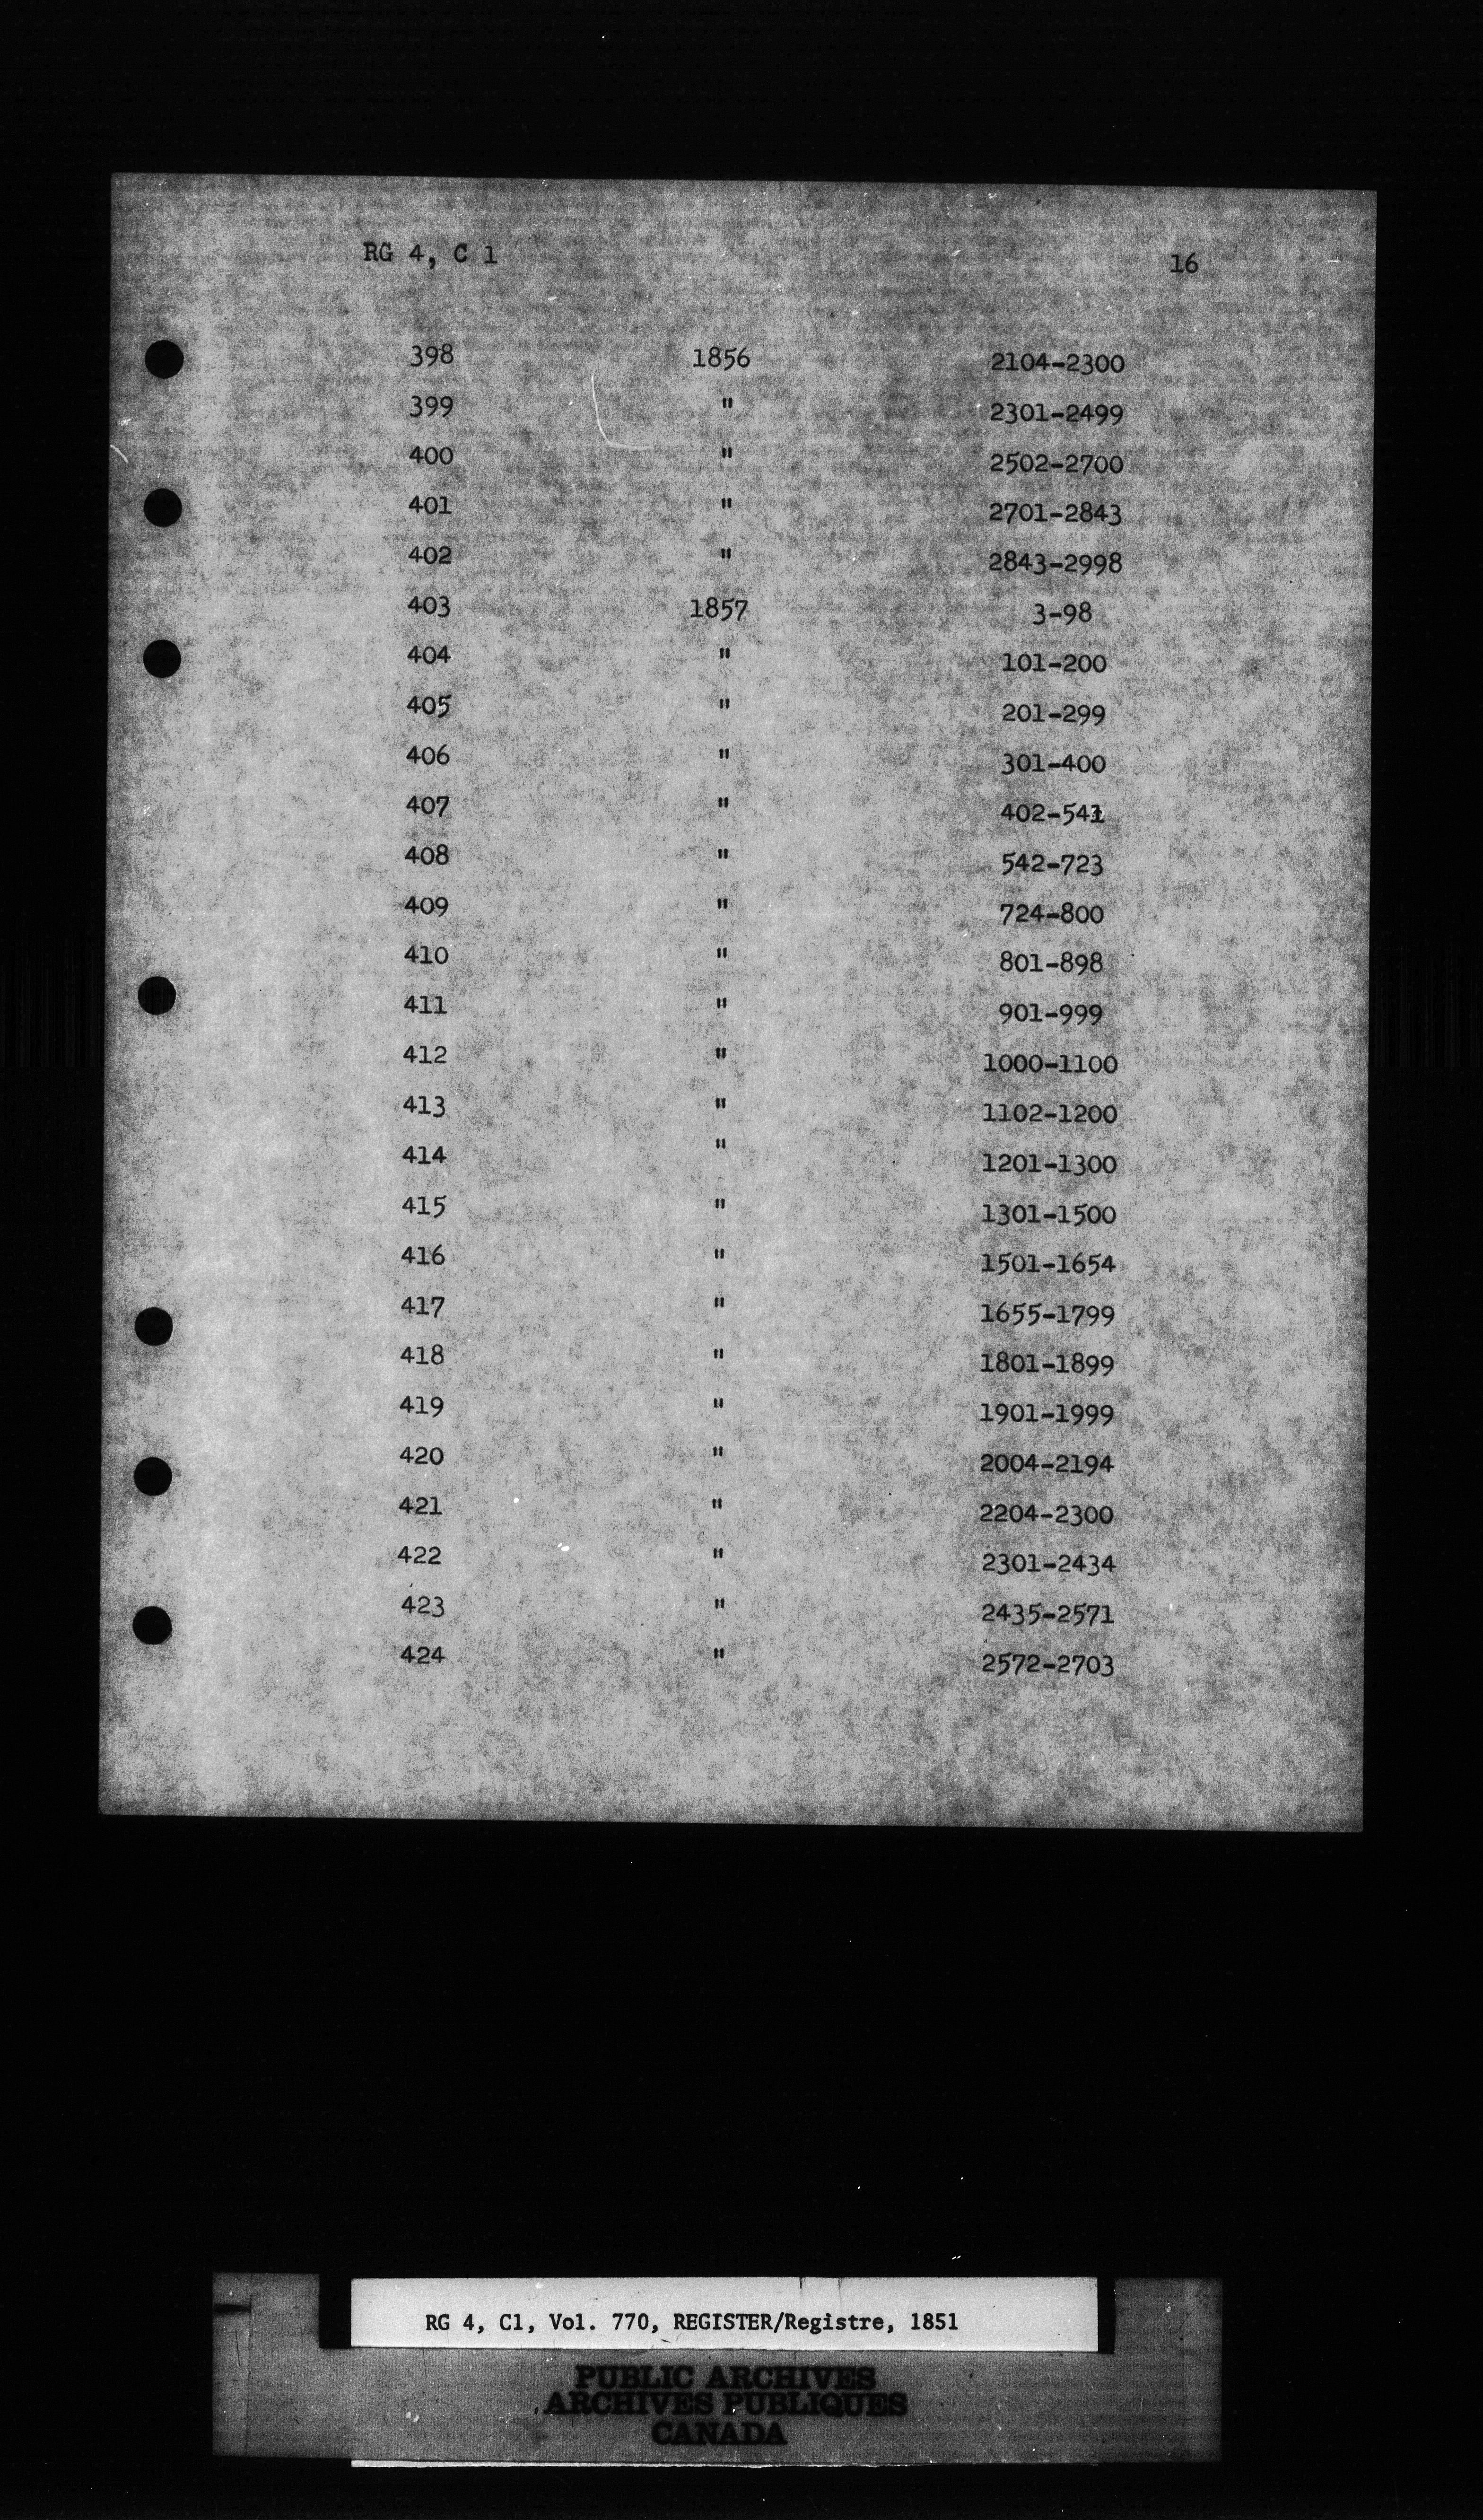 RG 4, C 1 16
398 1856 2104-2300
399 " 2301-2499
400 " 2502-2700
401 " 2701-2843
402 " 2843-2998
403 1857 3-98
404 " 101-200
405 " 201-299
406 " 301-400
407 " 402-541
408 " 542-723
409 " 724-800
410 " 801-898
411 " 901-999
412 " 1000-1100
413 " 1102-1200
414 " 1201-1300
415 " 1301-1500
416 " 1501-1654
417 " 1655-1799
418 " 1801-1899
419 " 1901-1999
420 " 2004-2194
421 " 2204-2300
422 " 2301-2434
423 " 2435-2571
424 " 2572-2703
RG 4, C1, Vol. 770, REGISTER/Registre, 1851
PUBLIC ARCHIVES
ARCHIVES PUBLIQUES
CANADA